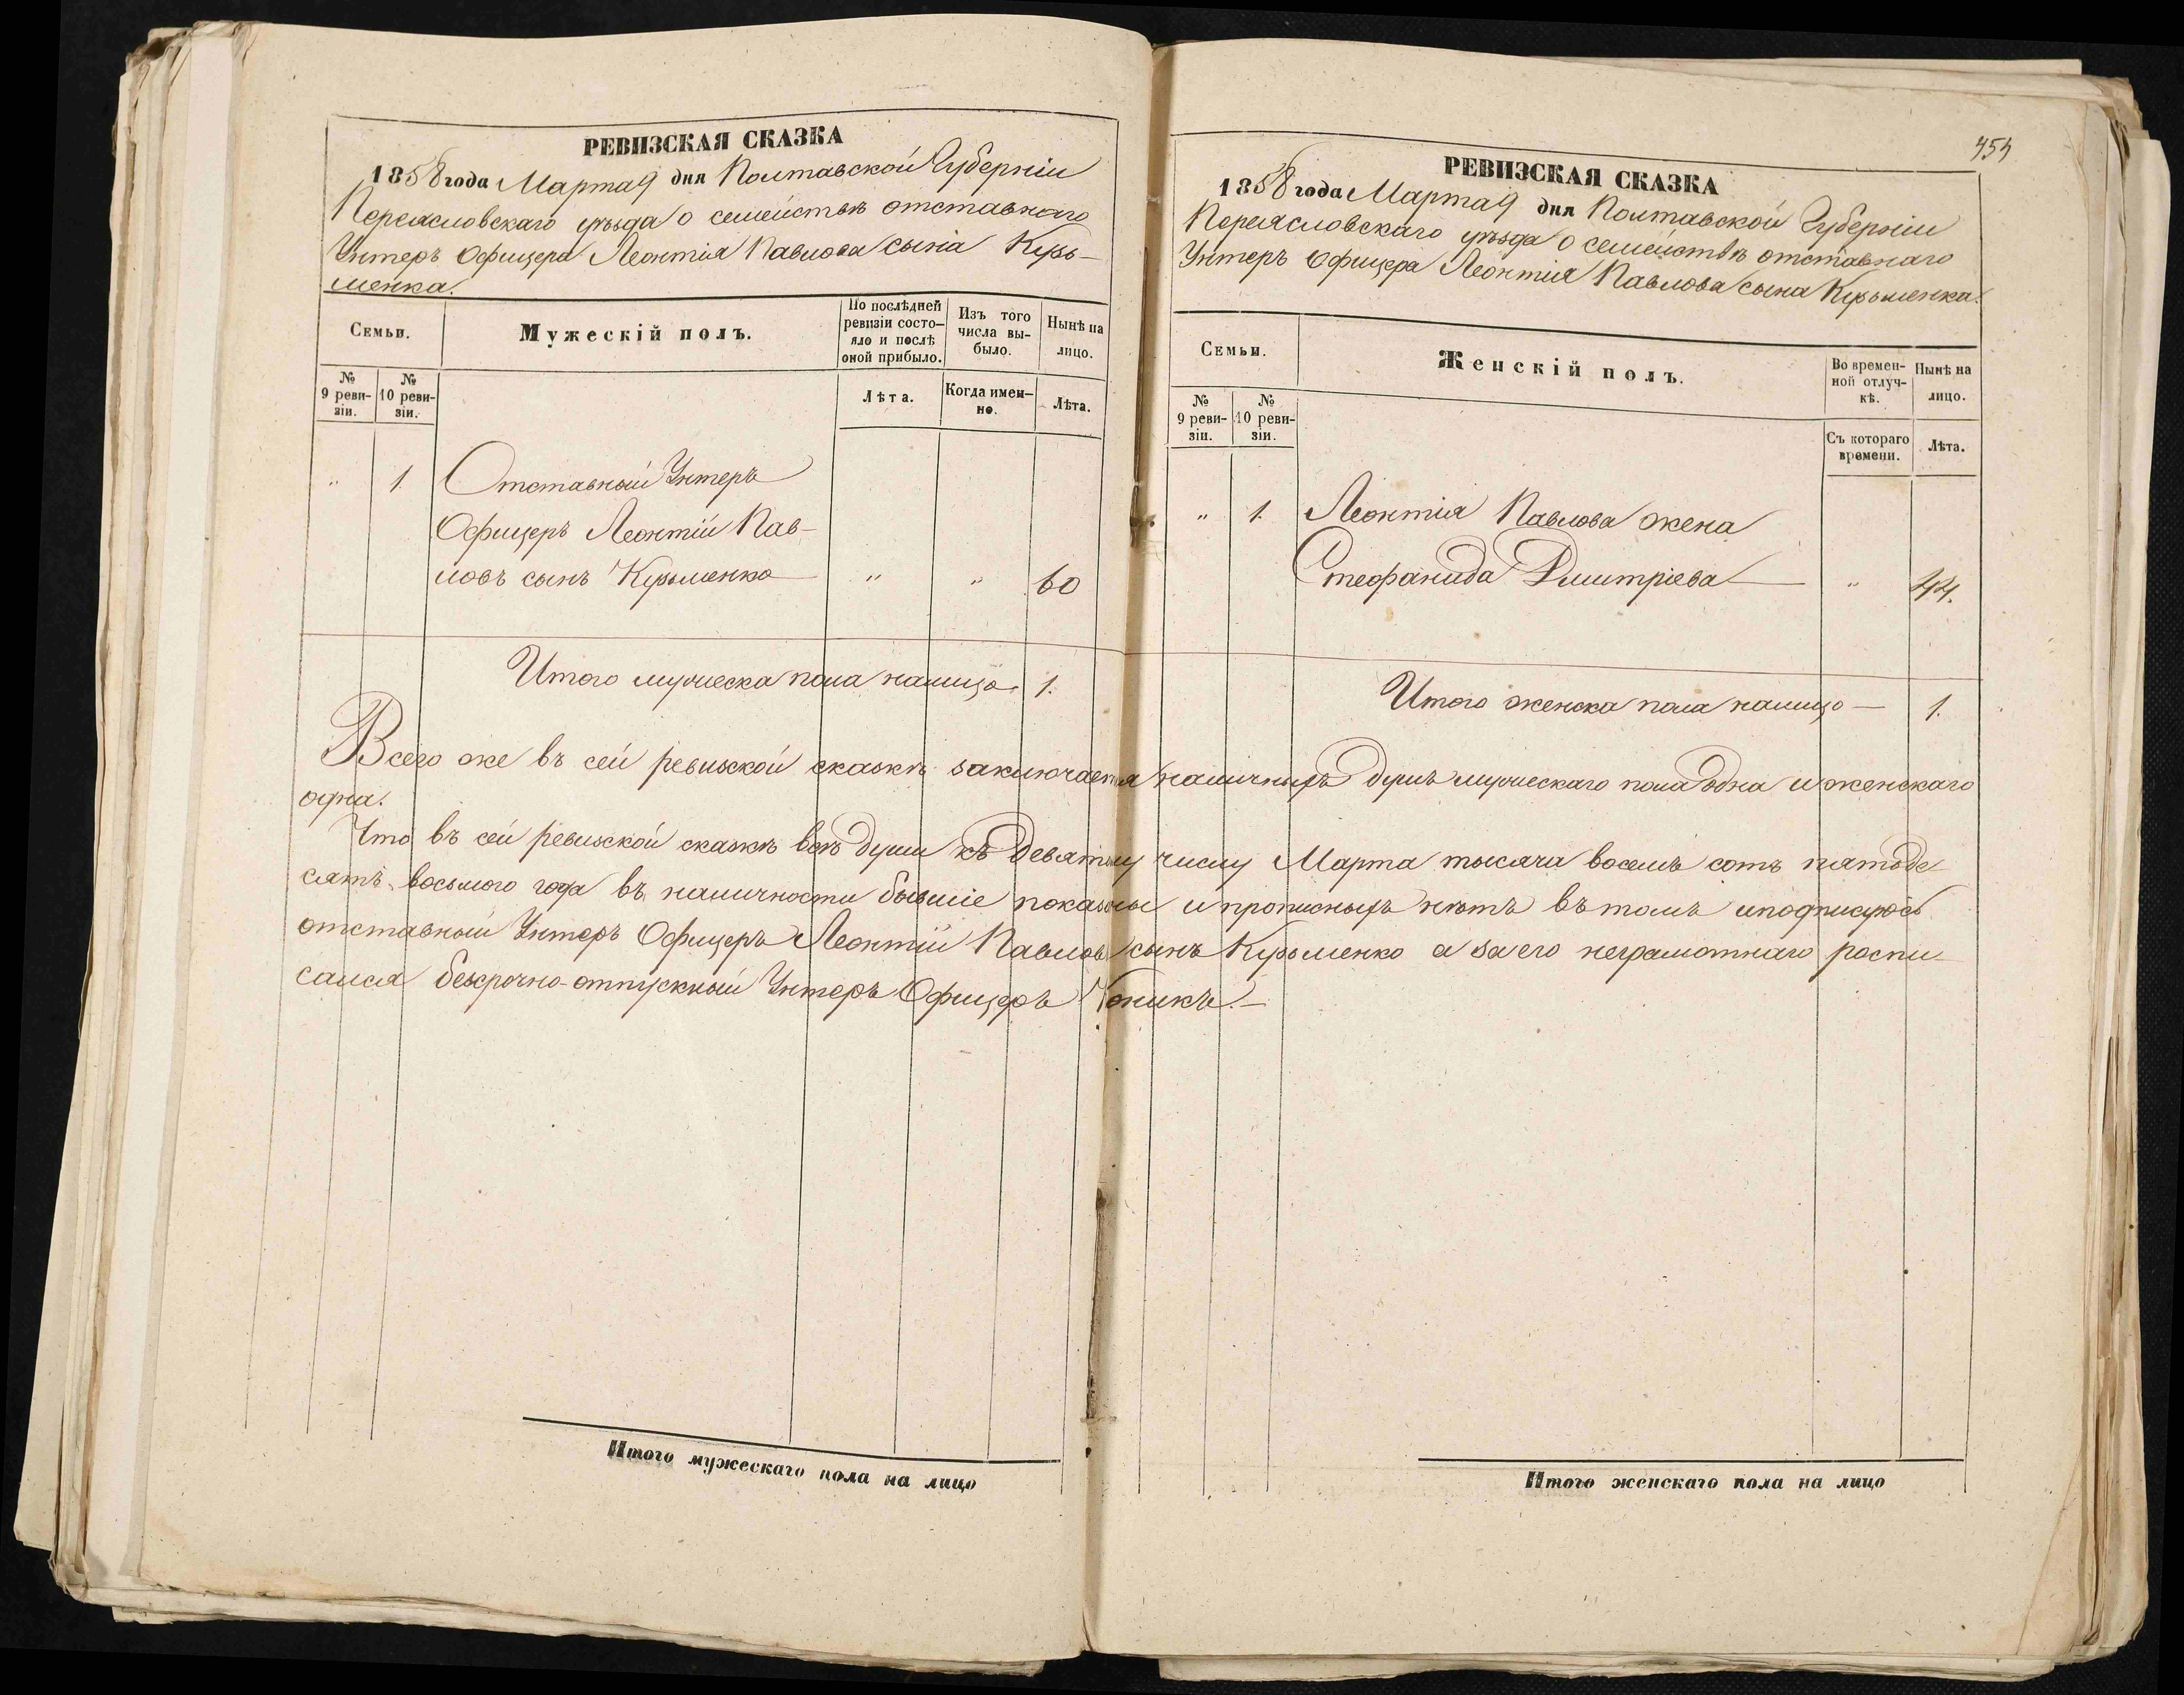 РЕВИЗСКАЯ СКАЗКА
1858 года Марта 9 дня Полтавской Губерніи
Переясловскаго уѣзда о семействѣ отставнаго
Унтеръ Офицера Леонтія Павлова сына Кузь-
менка.
Семьи.
Мужескій полъ.
По послѣдней
ревизіи состо-
яло и послѣ
оной прибыло.
Изъ того
числа вы-
было.
Нынѣ на
лицо.
№
9 реви-
зіи.
№
10 реви-
зіи.
Лѣта.
Когда имен-
но.
Лѣта.
" 1. Отставный Унтеръ
Офицеръ Леонтій Пав-
ловъ сынъ Кузьменко " " 60
Итого мужеска пола налицо 1.
454
РЕВИЗСКАЯ СКАЗКА
1858 года Марта 9 дня Полтавской Губерніи
Переясловскаго уѣзда о семействѣ отставнаго
Унтеръ Офицера Леонтія Павлова сына Кузьменка.
Семьи.
Женскій полъ.
Во времен-
ной отлуч-
кѣ.
Нынѣ на
лицо.
№
9 реви-
зіи.
№
10 реви-
зіи.
Съ котораго
времени.
Лѣта.
" 1. Леонтія Павлова жена
Стефанида Дмитріева " 44.
Итого женска пола налицо — 1.
Всего же въ сей ревизской сказкѣ заключается наличныхъ душъ мужескаго пола одна и женскаго
одна.
Что въ сей ревизской сказкѣ всѣ души къ Девятому числу Марта тысяча восемь сотъ пятьде
сятъ восьмого года въ наличности бывшіе показаны и прописныхъ нѣтъ въ томъ и подписуюсь
отставный Унтеръ Офицеръ Леонтій Павловъ сынъ Кузьменко а за его неграмотнаго роспи-
сался безсрочно-отпускный Унтеръ Офицеръ
Итого мужескаго пола на лицо
Итого женскаго пола на лицо